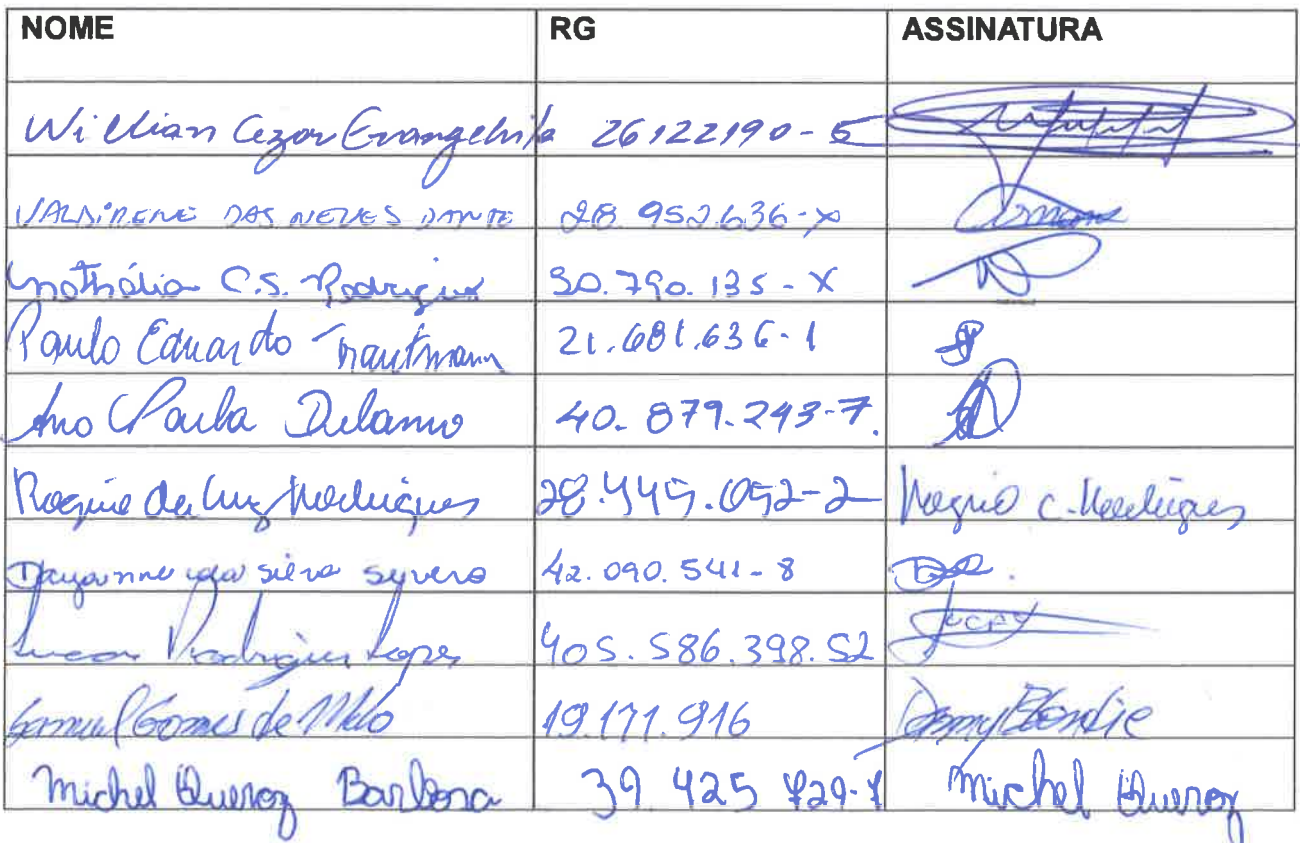 NOME RG ASSINATURA
Willian Cezar Evangelista 26122190-5
VALDIRENE DAS NEVES DANTE 28.952.636-X
Nathália C.S. Rodrigues 30.790.135-X
Paulo Eduardo Trautmann 21.681.636-1
Ana Paula Delamo 40.879.243-7.
Rogério da Luz Rodrigues 28.445.052-2
Dayanne da Silva Severo 42.090.541-8
Lucas Rodrigues Lopes 405.586.398.52 Lucas
Samuel Gomes de Melo 19.171.916
Michel Queroz Barbosa 39 425 729-1 Michel Queroz